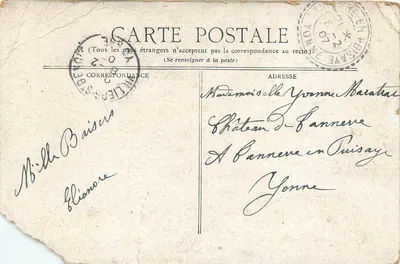 CARTE POSTALE
(Tous les pays étrangers n'acceptent pas la correspondance au recto)
(Se renseigner à la poste)
CORRESPONDANCE
ADRESSE
Mademoiselle Yvonne
Château de Tannerre
A Tannerre en Puisaye
Yonne
Mille Baisers
Eléonore
VILLIERS-ST-BENOIT
YONNE